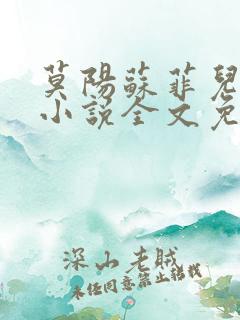 莫陽蘇菲兒
小說全文免
深山老賊
未經同意禁止轉載